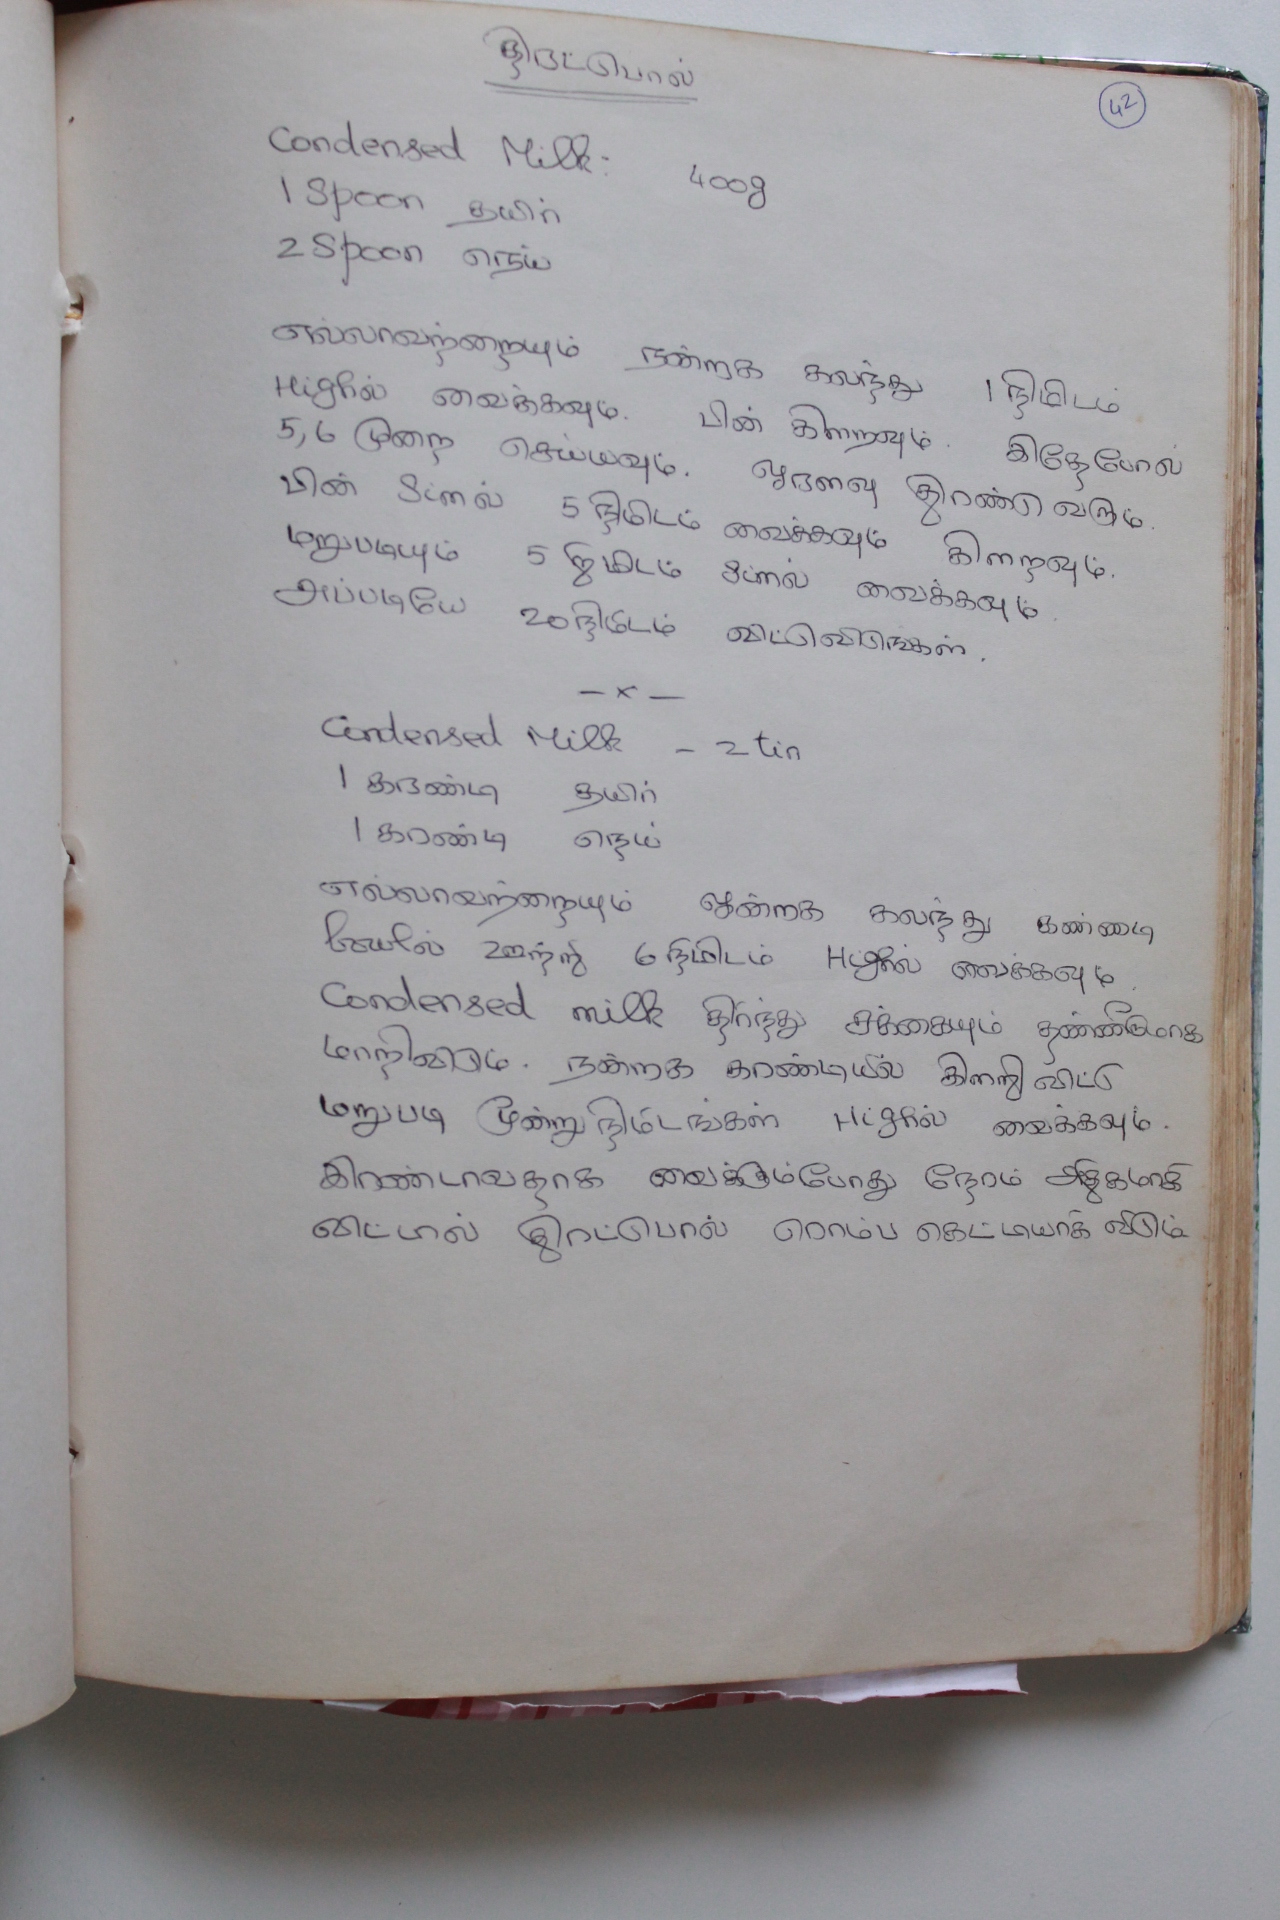 திரட்டுபால்
42
Condensed Milk: 400g
1 Spoon தயிர்
2 Spoon நெய்
எல்லாவற்றையும் நன்றாக கலந்து 1 நிமிடம்
Highல் வைக்கவும். பின் கிளறவும். இதேபோல்
5,6 முறை செய்யவும். ஓரளவு திரண்டு வரும்.
பின் 8ப்ளல் 5 நிமிடம் வைக்கவும் கிளறவும்.
மறுபடியும் 5 நிமிடம் 8ப்ளல் வைக்கவும்.
அப்படியே 20 நிமிடம் விட்டுவிடுங்கள்.
— x —
Condensed Milk – 2 tin
1 கரண்டி தயிர்
1 கரண்டி நெய்
எல்லாவற்றையும் ஒன்றாக கலந்து கண்ணாடி
ஊற்றி 6 நிமிடம் Highல் வைக்கவும்.
Condensed milk திரிந்து சக்கையும் தண்ணீருமாக
மாறிவிடும். நன்றாக கரண்டியில் கிளறி விட்டு
மறுபடி மூன்று நிமிடங்கள் Highல் வைக்கவும்.
இரண்டாவதாக வைக்கும்போது நேரம் அதிகமாகி
விட்டால் திரட்டுபால் ரொம்ப கெட்டியாகி விடும்